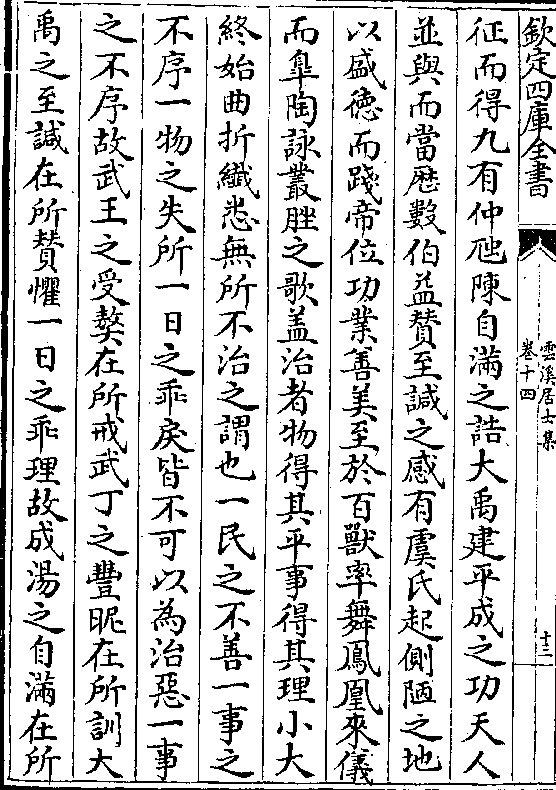 欽定四庫全書
雲溪居士集
卷十四
十三
征而得九有仲虺陳自滿之誥大禹建平成之功天人
並與而當厯數伯益賛至諴之感有虞氏起側陋之地
以盛徳而踐帝位功業善美至於百獸率舞鳳凰來儀
而臯陶詠叢脞之歌盖治者物得其平事得其理小大
終始曲折纎悉無所不治之謂也一民之不善一事之
不序一物之失所一日之乖戾皆不可以為治惡一事
之不序故武王之受獒在所戒武丁之豐昵在所訓大
禹之至諴在所賛懼一日之乖理故成湯之自滿在所